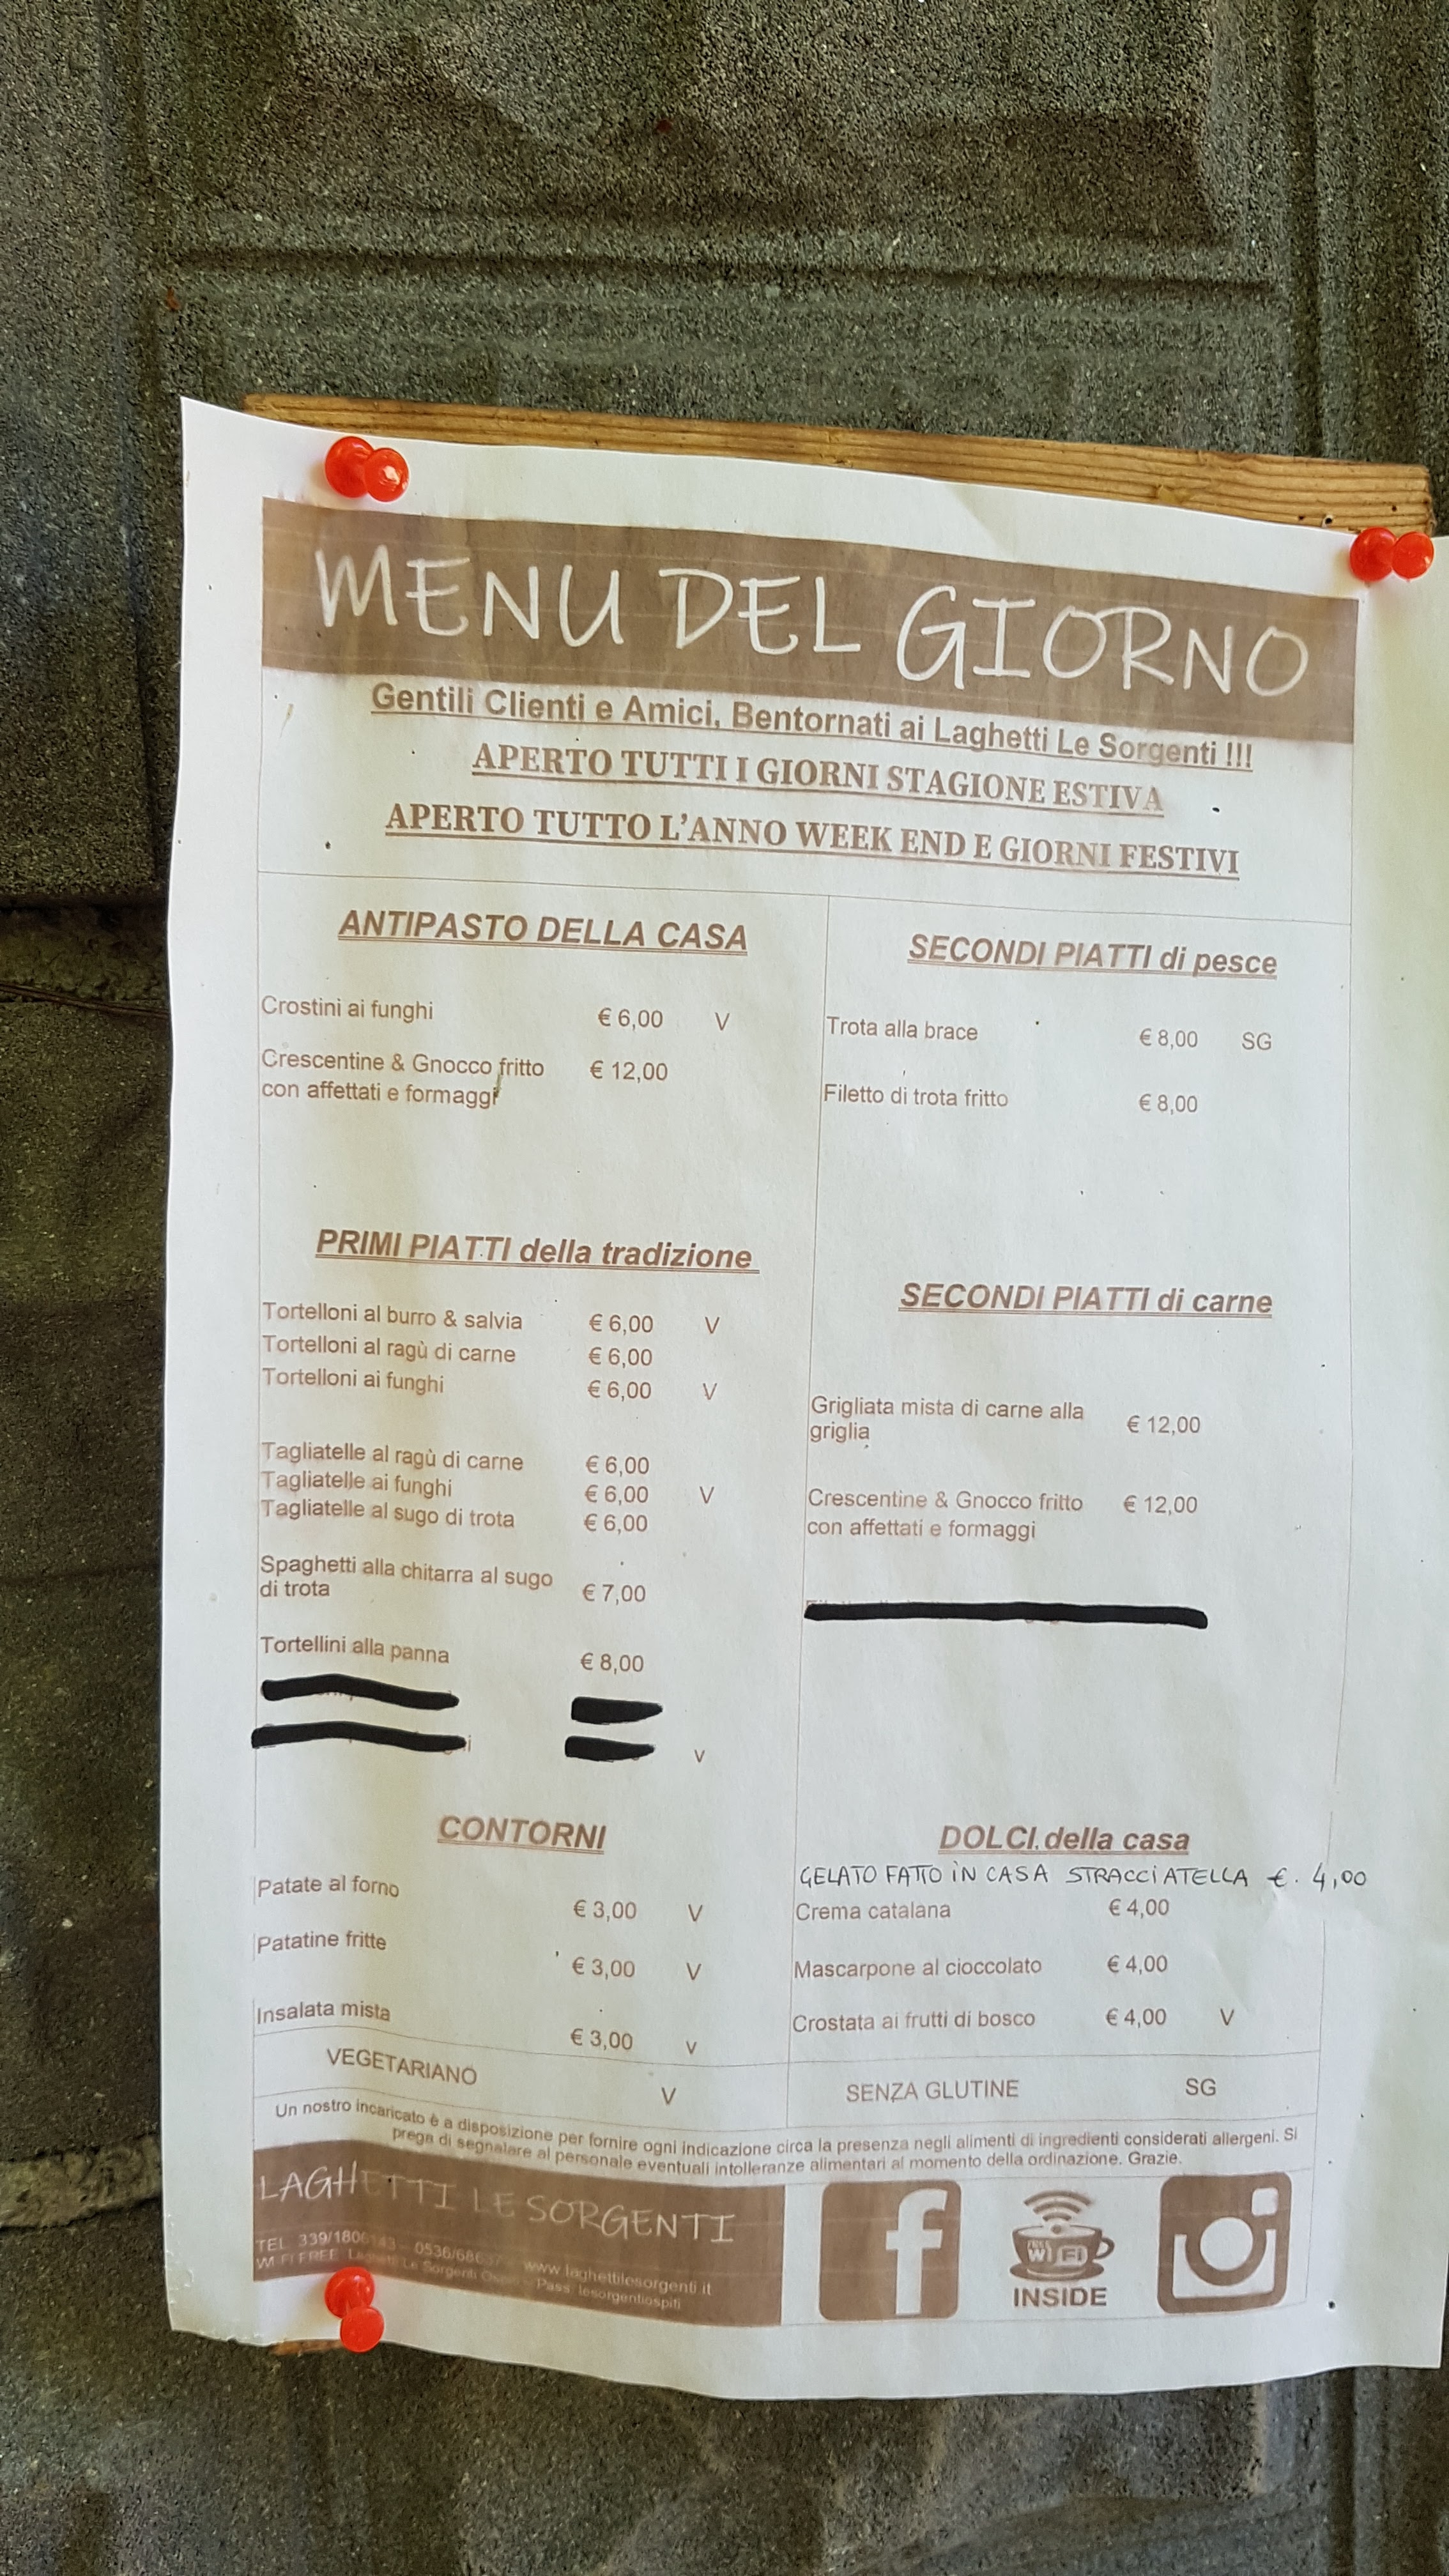 MENU DEL GIORNO
Gentili Clienti e Amici, Bentornati ai Laghetti Le Sorgenti !!!
APERTO TUTTI I GIORNI STAGIONE ESTIVA
APERTO TUTTO L'ANNO WEEK END E GIORNI FESTIVI
ANTIPASTO DELLA CASA
Crostini ai funghi € 6,00 V
Crescentine & Gnocco fritto € 12,00
con affettati e formaggi
PRIMI PIATTI della tradizione
Tortelloni al burro & salvia € 6,00 V
Tortelloni al ragù di carne € 6,00
Tortelloni ai funghi € 6,00 V
Tagliatelle al ragù di carne € 6,00
Tagliatelle ai funghi € 6,00 V
Tagliatelle al sugo di trota € 6,00
Spaghetti alla chitarra al sugo
di trota € 7,00
Tortellini alla panna € 8,00
V
CONTORNI
Patate al forno € 3,00 V
Patatine fritte € 3,00 V
Insalata mista € 3,00 V
VEGETARIANO V
SECONDI PIATTI di pesce
Trota alla brace € 8,00 SG
Filetto di trota fritto € 8,00
SECONDI PIATTI di carne
Grigliata mista di carne alla € 12,00
griglia
Crescentine & Gnocco fritto € 12,00
con affettati e formaggi
DOLCI della casa
GELATO FATTO IN CASA STRACCIATELLA €. 4,00
Crema catalana € 4,00
Mascarpone al cioccolato € 4,00
Crostata ai frutti di bosco € 4,00 V
SENZA GLUTINE SG
Un nostro incaricato è a disposizione per fornire ogni indicazione circa la presenza negli alimenti di ingredienti considerati allergeni. Si
prega di segnalare al personale eventuali intolleranze alimentari al momento della ordinazione. Grazie.
LAGHETTI LE SORGENTI
TEL. www.laghettilesorgenti.it
WI FI FREE Laghetti Le Sorgenti Pass: lesorgentiospiti
FREE
Wi Fi
INSIDE